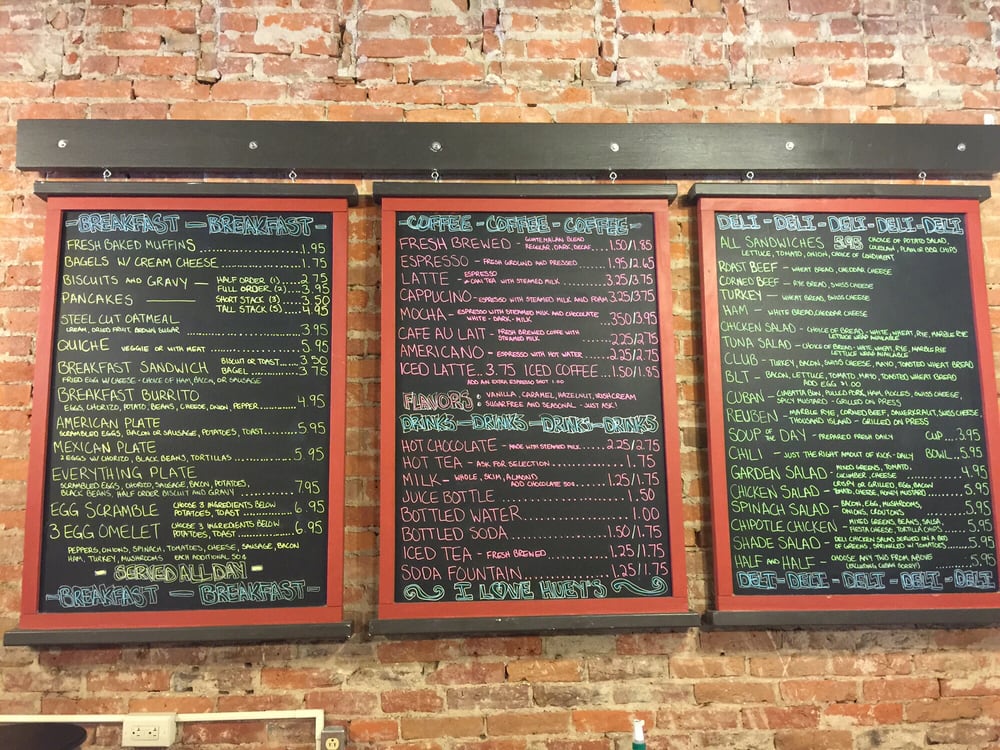 -BREAKFAST - BREAKFAST-
FRESH BAKED MUFFINS 1.95
BAGELS W/ CREAM CHEESE 1.75
BISCUITS AND GRAVY - HALF ORDER (1) 2.75
FULL ORDER (2) 3.95
PANCAKES - SHORT STACK (3) 3.50
TALL STACK (5) 4.95
STEEL CUT OATMEAL
CREAM, DRIED FRUIT, BROWN SUGAR 3.95
QUICHE VEGGIE OR WITH MEAT 5.95
BREAKFAST SANDWICH BISCUIT OR TOAST 3.50
BAGEL 3.75
FRIED EGG W/CHEESE - CHOICE OF HAM, BACON, OR SAUSAGE
BREAKFAST BURRITO
EGGS, CHORIZO, POTATO, BEANS, CHEESE, ONION, PEPPER 4.95
AMERICAN PLATE
SCRAMBLED EGGS, BACON OR SAUSAGE, POTATOES, TOAST 5.95
MEXICAN PLATE
2 EGGS W/ CHORIZO, BLACK BEANS, TORTILLAS 5.95
EVERYTHING PLATE
SCRAMBLED EGGS, CHORIZO, SAUSAGE, BACON, POTATOES,
BLACK BEANS, HALF ORDER BISCUIT AND GRAVY 7.95
EGG SCRAMBLE CHOOSE 3 INGREDIENTS BELOW
POTATOES, TOAST 6.95
3 EGG OMELET CHOOSE 3 INGREDIENTS BELOW
POTATOES, TOAST 6.95
PEPPERS, ONIONS, SPINACH, TOMATOES, CHEESE, SAUSAGE, BACON
HAM, TURKEY, MUSHROOMS EACH ADDITIONAL 50¢
- SERVED ALL DAY -
-BREAKFAST - BREAKFAST-
COFFEE - COFFEE - COFFEE-
FRESH BREWED - GUATEMALAN BLEND
REGULAR, DARK, DECAF 1.50/1.85
ESPRESSO - FRESH GROUND AND PRESSED 1.95/2.65
LATTE - ESPRESSO
TEA WITH STEAMED MILK 3.25/3.75
CAPPUCINO - ESPRESSO WITH STEAMED MILK AND FOAM 3.25/3.75
MOCHA - ESPRESSO WITH STEAMED MILK AND CHOCOLATE
WHITE - DARK - MILK 3.50/3.95
CAFE AU LAIT - FRESH BREWED COFFE WITH
STEAMED MILK 2.25/2.75
AMERICANO - ESPRESSO WITH HOT WATER 2.25/2.75
ICED LATTE.. 3.75 ICED COFFEE...1.50/1.85
ADD AN EXTRA ESPRESSO SHOT 1.00
FLAVORS VANILLA, CARAMEL, HAZELNUT, IRISH CREAM
SUGARFREE AND SEASONAL - JUST ASK!
DRINKS - DRINKS - DRINKS - DRINKS
HOT CHOCOLATE - MADE WITH STEAMED MILK 2.25/2.75
HOT TEA - ASK FOR SELECTION 1.75
MILK - WHOLE, SKIM, ALMOND
ADD CHOCOLATE 50¢ 1.25/1.75
JUICE BOTTLE 1.50
BOTTLED WATER 1.00
BOTTLED SODA 1.50/1.75
ICED TEA - FRESH BREWED 1.25/1.75
SODA FOUNTAIN 1.25/1.75
I LOVE HUEY'S
DELI - DELI - DELI - DELI - DELI
ALL SANDWICHES 5.95 CHOICE OF POTATO SALAD,
COLESLAW, PLAIN OR BBQ CHIPS
LETTUCE, TOMATO, ONION, CHOICE OF CONDIMENT
ROAST BEEF - WHEAT BREAD, CHEDDAR CHEESE
CORNED BEEF - RYE BREAD, SWISS CHEESE
TURKEY - WHEAT BREAD, SWISS CHEESE
HAM - WHITE BREAD, CHEDDAR CHEESE
CHICKEN SALAD - CHOICE OF BREAD - WHITE, WHEAT, RYE, MARBLE RYE
LETTUCE WRAP AVAILABLE
TUNA SALAD - CHOICE OF BREAD - WHITE, WHEAT, RYE, MARBLE RYE
LETTUCE WRAP AVAILABLE
CLUB - TURKEY, BACON, SWISS CHEESE, MAYO, TOASTED WHEAT BREAD
BLT - BACON, LETTUCE, TOMATO, MAYO, TOASTED WHEAT BREAD
ADD EGG $1.00
CUBAN - CIABATTA BUN, PULLED PORK, HAM, PICKLES, SWISS CHEESE,
SPICY MUSTARD - GRILLED ON PRESS
REUBEN - MARBLE RYE, CORNED BEEF, SAUERKRAUT, SWISS CHEESE,
THOUSAND ISLAND - GRILLED ON PRESS
SOUP OF THE DAY - PREPARED FRESH DAILY CUP...3.95
CHILI - JUST THE RIGHT AMOUT OF KICK - DAILY BOWL..5.95
GARDEN SALAD - MIXED GREENS, TOMATO,
CUCUMBER, CHEESE 4.95
CHICKEN SALAD - CRISPY OR GRILLED, EGG, BACON
TOMATO, CHEESE, HONEY MUSTARD 5.95
SPINACH SALAD - BACON, EGG, MUSHROOMS,
ONIONS, CROUTONS 5.95
CHIPOTLE CHICKEN - MIXED GREENS, BEANS, SALSA,
FIESTA CHEESE, TORTILLA CHIPS 5.95
SHADE SALAD - DELI CHICKEN SALAD SERVED ON A BED
OF GREENS, SPRINKLED W/ TOMATOES 5.95
HALF AND HALF - CHOOSE ANY TWO FROM ABOVE
(EXCLUDING CUBAN SORRY!) 5.95
DELI - DELI - DELI - DELI - DELI